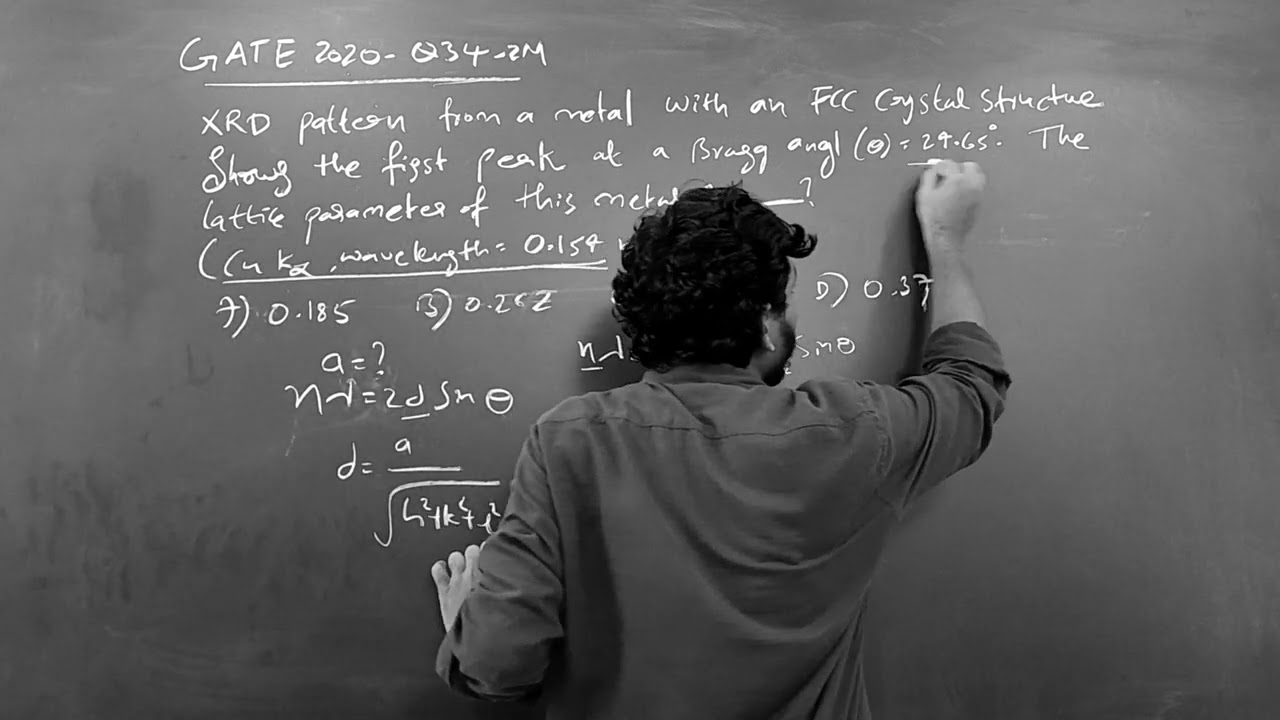 GATE 2020- Q34-2M
XRD pattern from a metal with an FCC Crystal Structure
Shows the first peak at a Bragg angl (θ) = 24.65°. The
lattice parameter of this metal ?
(Cu kα, wavelength = 0.154
A) 0.185 B) 0.262 D) 0.37
a = ?
nλ = 2d Sin θ
Sinθ
d = a / √h²+k²+l²